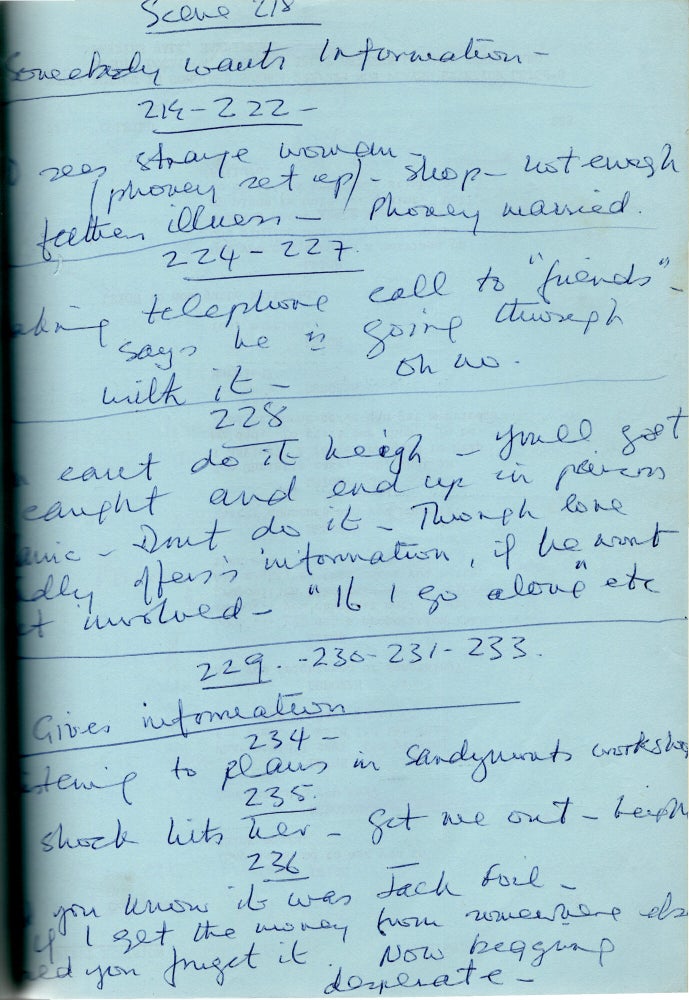 Scene 218
Somebody wants Information -
219-222 -
sees strange woman -
(phoney set up) - shop - not enough
father illness - Phoney married.
224-227
making telephone call to "friends" -
says he is going through
with it - oh no.
228
can't do it - you'll get
caught and end up in prison
panic - Dont do it - Through love
offers information, if he wont
get involved - "If I go alone" etc
229. -230-231-233.
Gives information
234 -
listening to plans in workshop
235
shock hits her - get me out -
236
you know it was Jack Foil -
if I get the money from somewhere else
you forget it. Now begging
desperate -